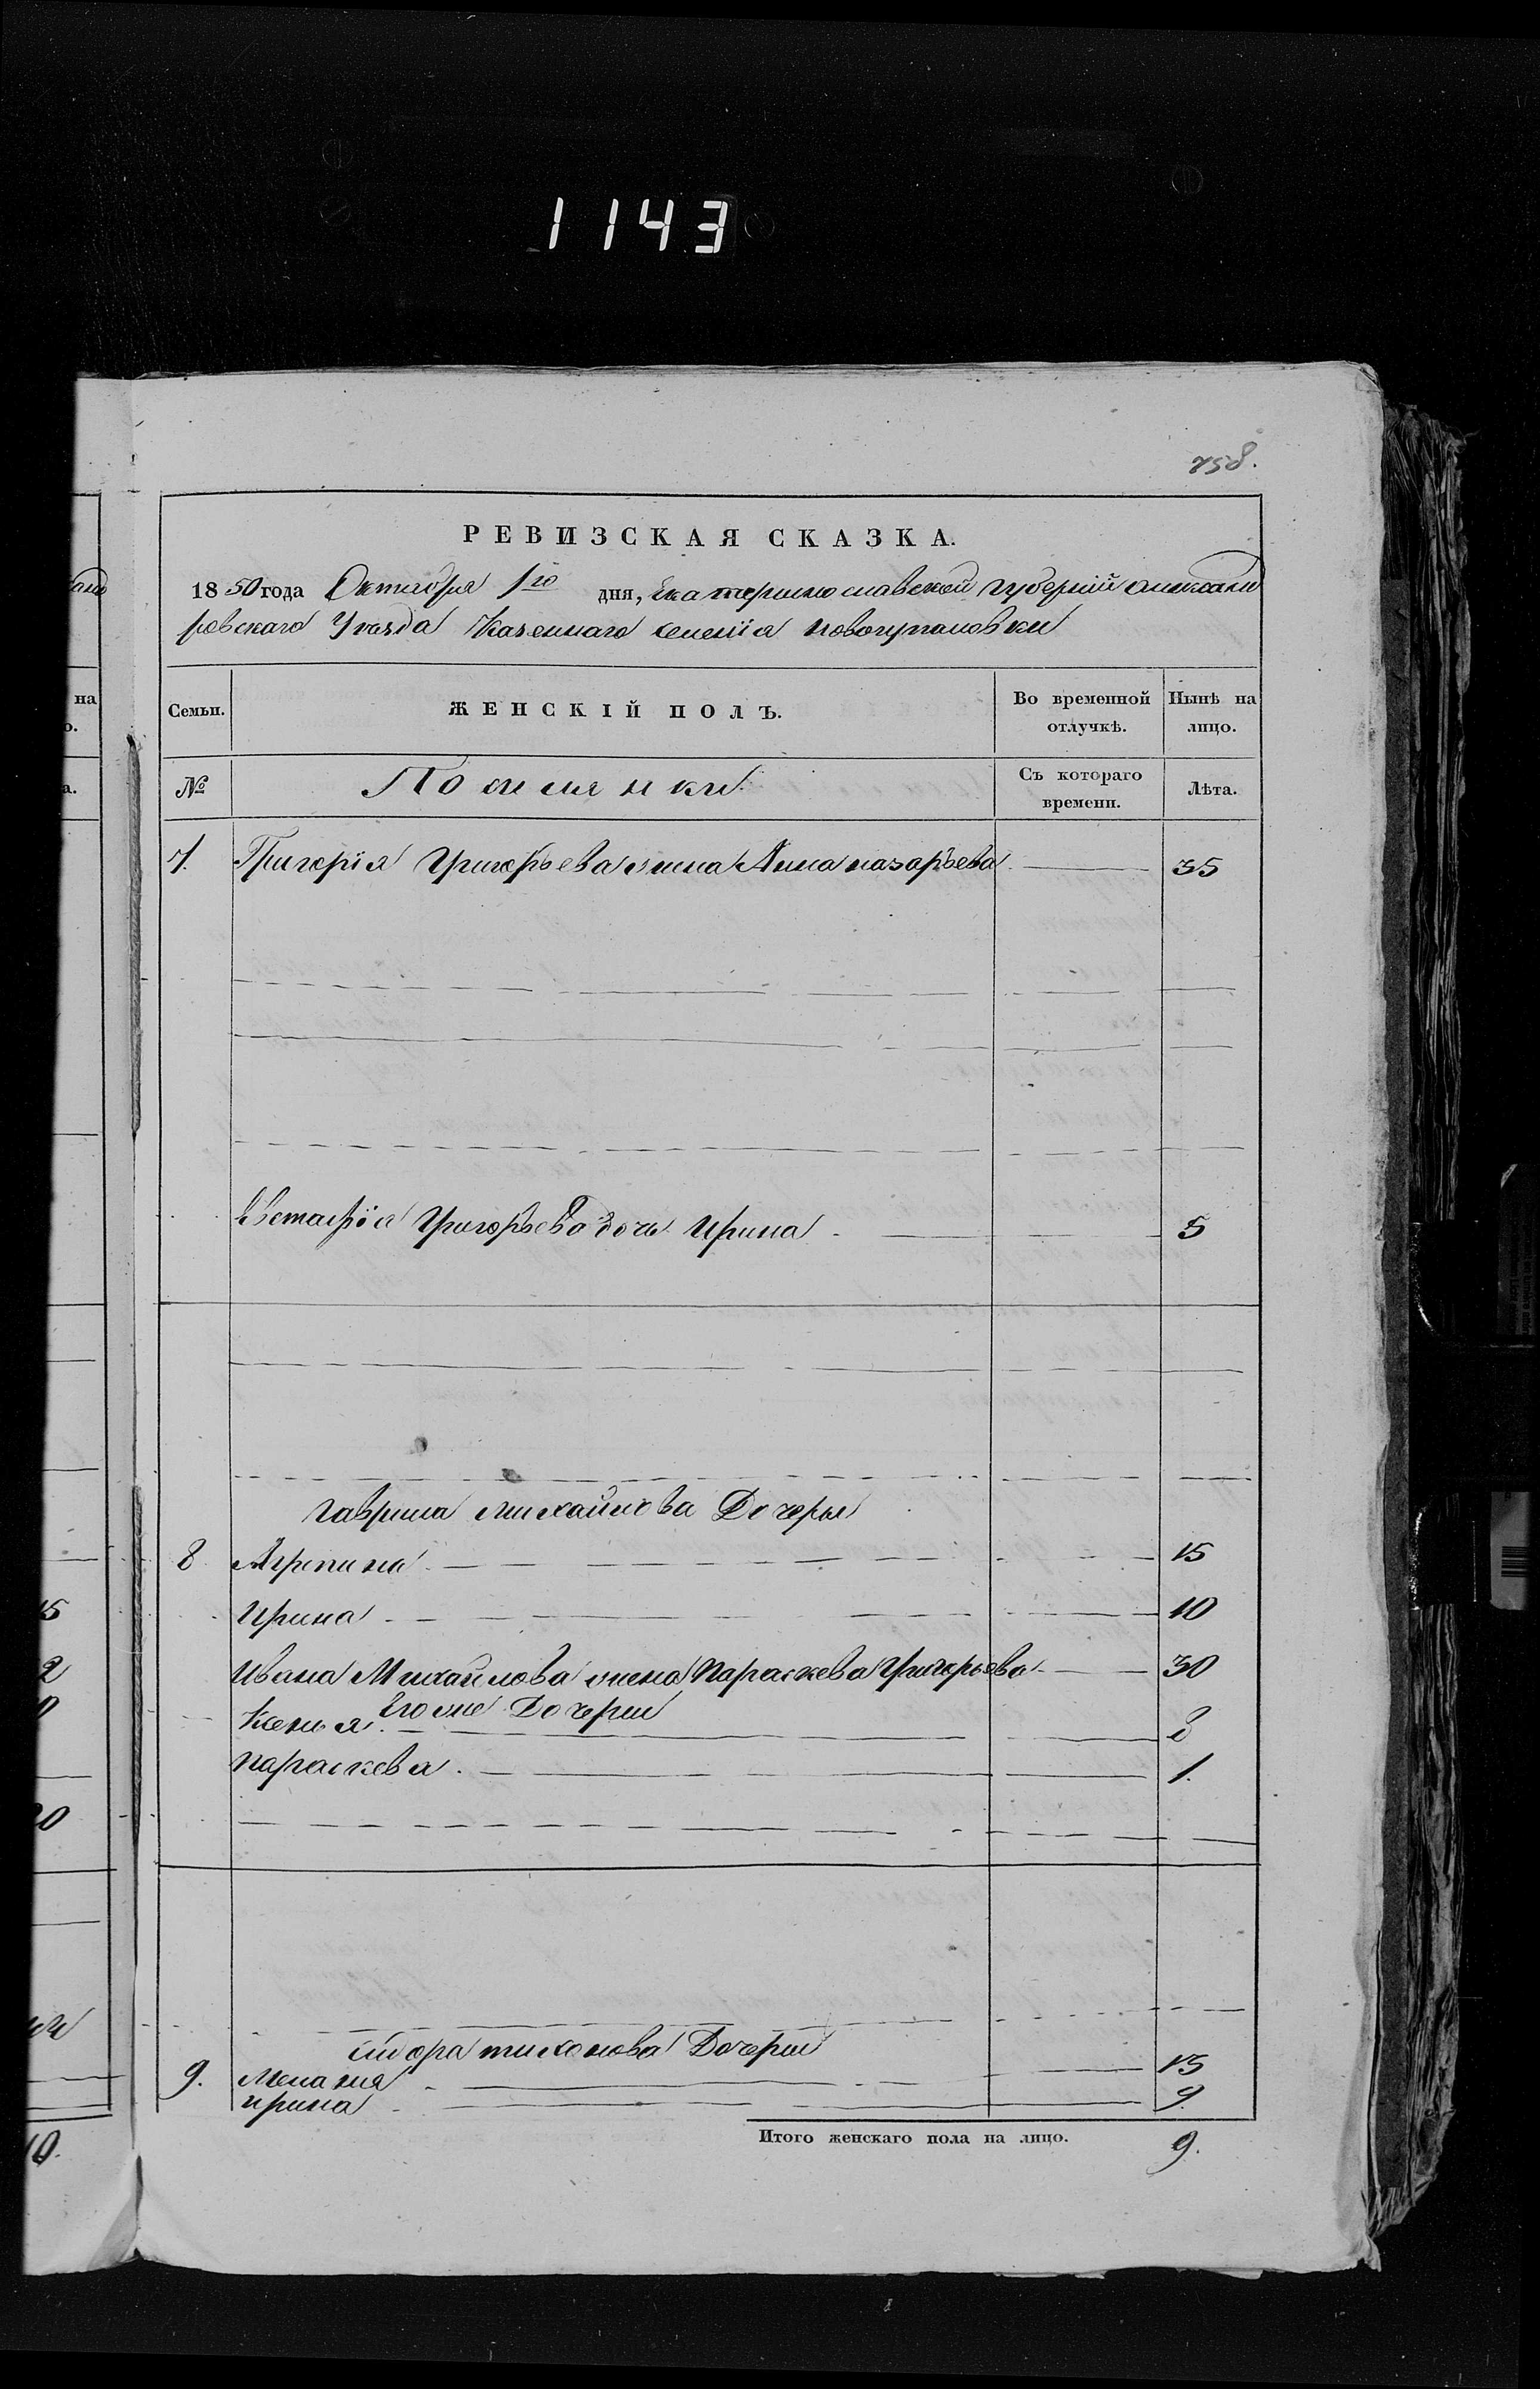 1143
258.
РЕВИЗСКАЯ СКАЗКА.
1850 года Октября 1го дня, Екатеринославской губерній александ
ровскаго Уезда Казеннаго селенія Новогупаловки
Семьи. ЖЕНСКІЙ ПОЛЪ. Во временной отлучкѣ. Нынѣ на лицо.
№ Съ котораго времени. Лѣта.
7. Григорія Григорьева жена Анна назарьева 35
Евстафія Григорьева дочь Ирина 5
гаврила михайлова Дочеры
8 Агрипина 15
Ирина 10
Ивана Михайлова жена Параскева Григорьева 30
Его же Дочери
Ксенья 3
параскева 1.
тихонова Дочери
9. Мелания 15
ирина 9
Итого женскаго пола на лицо. 9.
на
о.
а.
15
2
0
20
10.